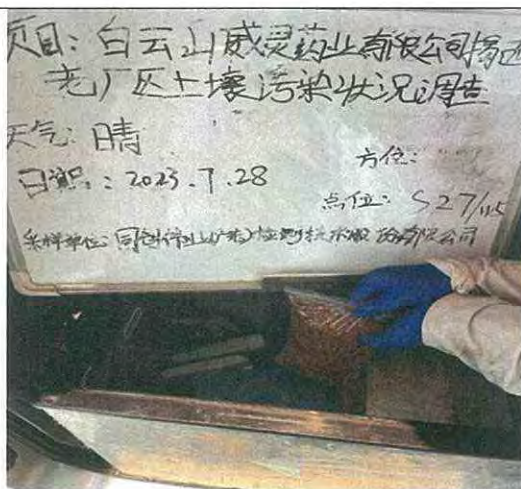 项目: 白云山威灵药业有限公司揭西
老厂区土壤污染状况调查
天气: 晴
方位:
日期: 2023.7.28
点位: S27/
采样单位: 同创伟业(广东)检测技术股份有限公司